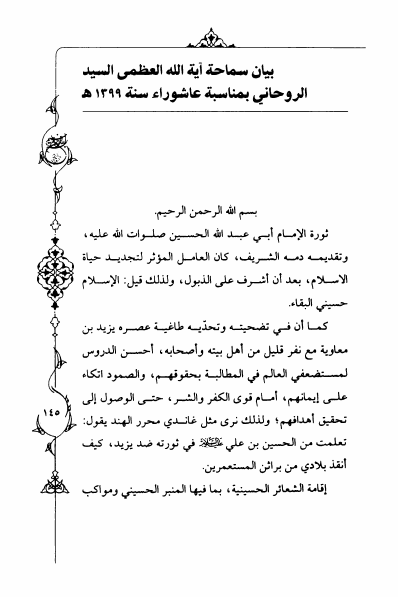 بيان سماحة آية الله العظمى السيد
الروحاني بمناسبة عاشوراء سنة ١٣٩٩ هـ
بسم الله الرحمن الرحيم.
ثورة الإمام أبي عبد الله الحسين صلوات الله عليه،
وتقديمه دمه الشريف، كان العامل المؤثر لتجديد حياة
الاسلام، بعد أن أشرف على الذبول، ولذلك قيل: الإسلام
حسيني البقاء.
كما أن في تضحيته وتحدّيه طاغية عصره يزيد بن
معاوية مع نفر قليل من أهل بيته وأصحابه، أحسن الدروس
لمستضعفي العالم في المطالبة بحقوقهم، والصمود اتكاء
على إيمانهم، أمام قوى الكفر والشر، حتى الوصول إلى
تحقيق أهدافهم؛ ولذلك نرى مثل غاندي محرر الهند يقول:
تعلمت من الحسين بن علي في ثورته ضد يزيد، كيف
أنقذ بلادي من براثن المستعمرين.
إقامة الشعائر الحسينية، بما فيها المنبر الحسيني ومواكب
١٤٥